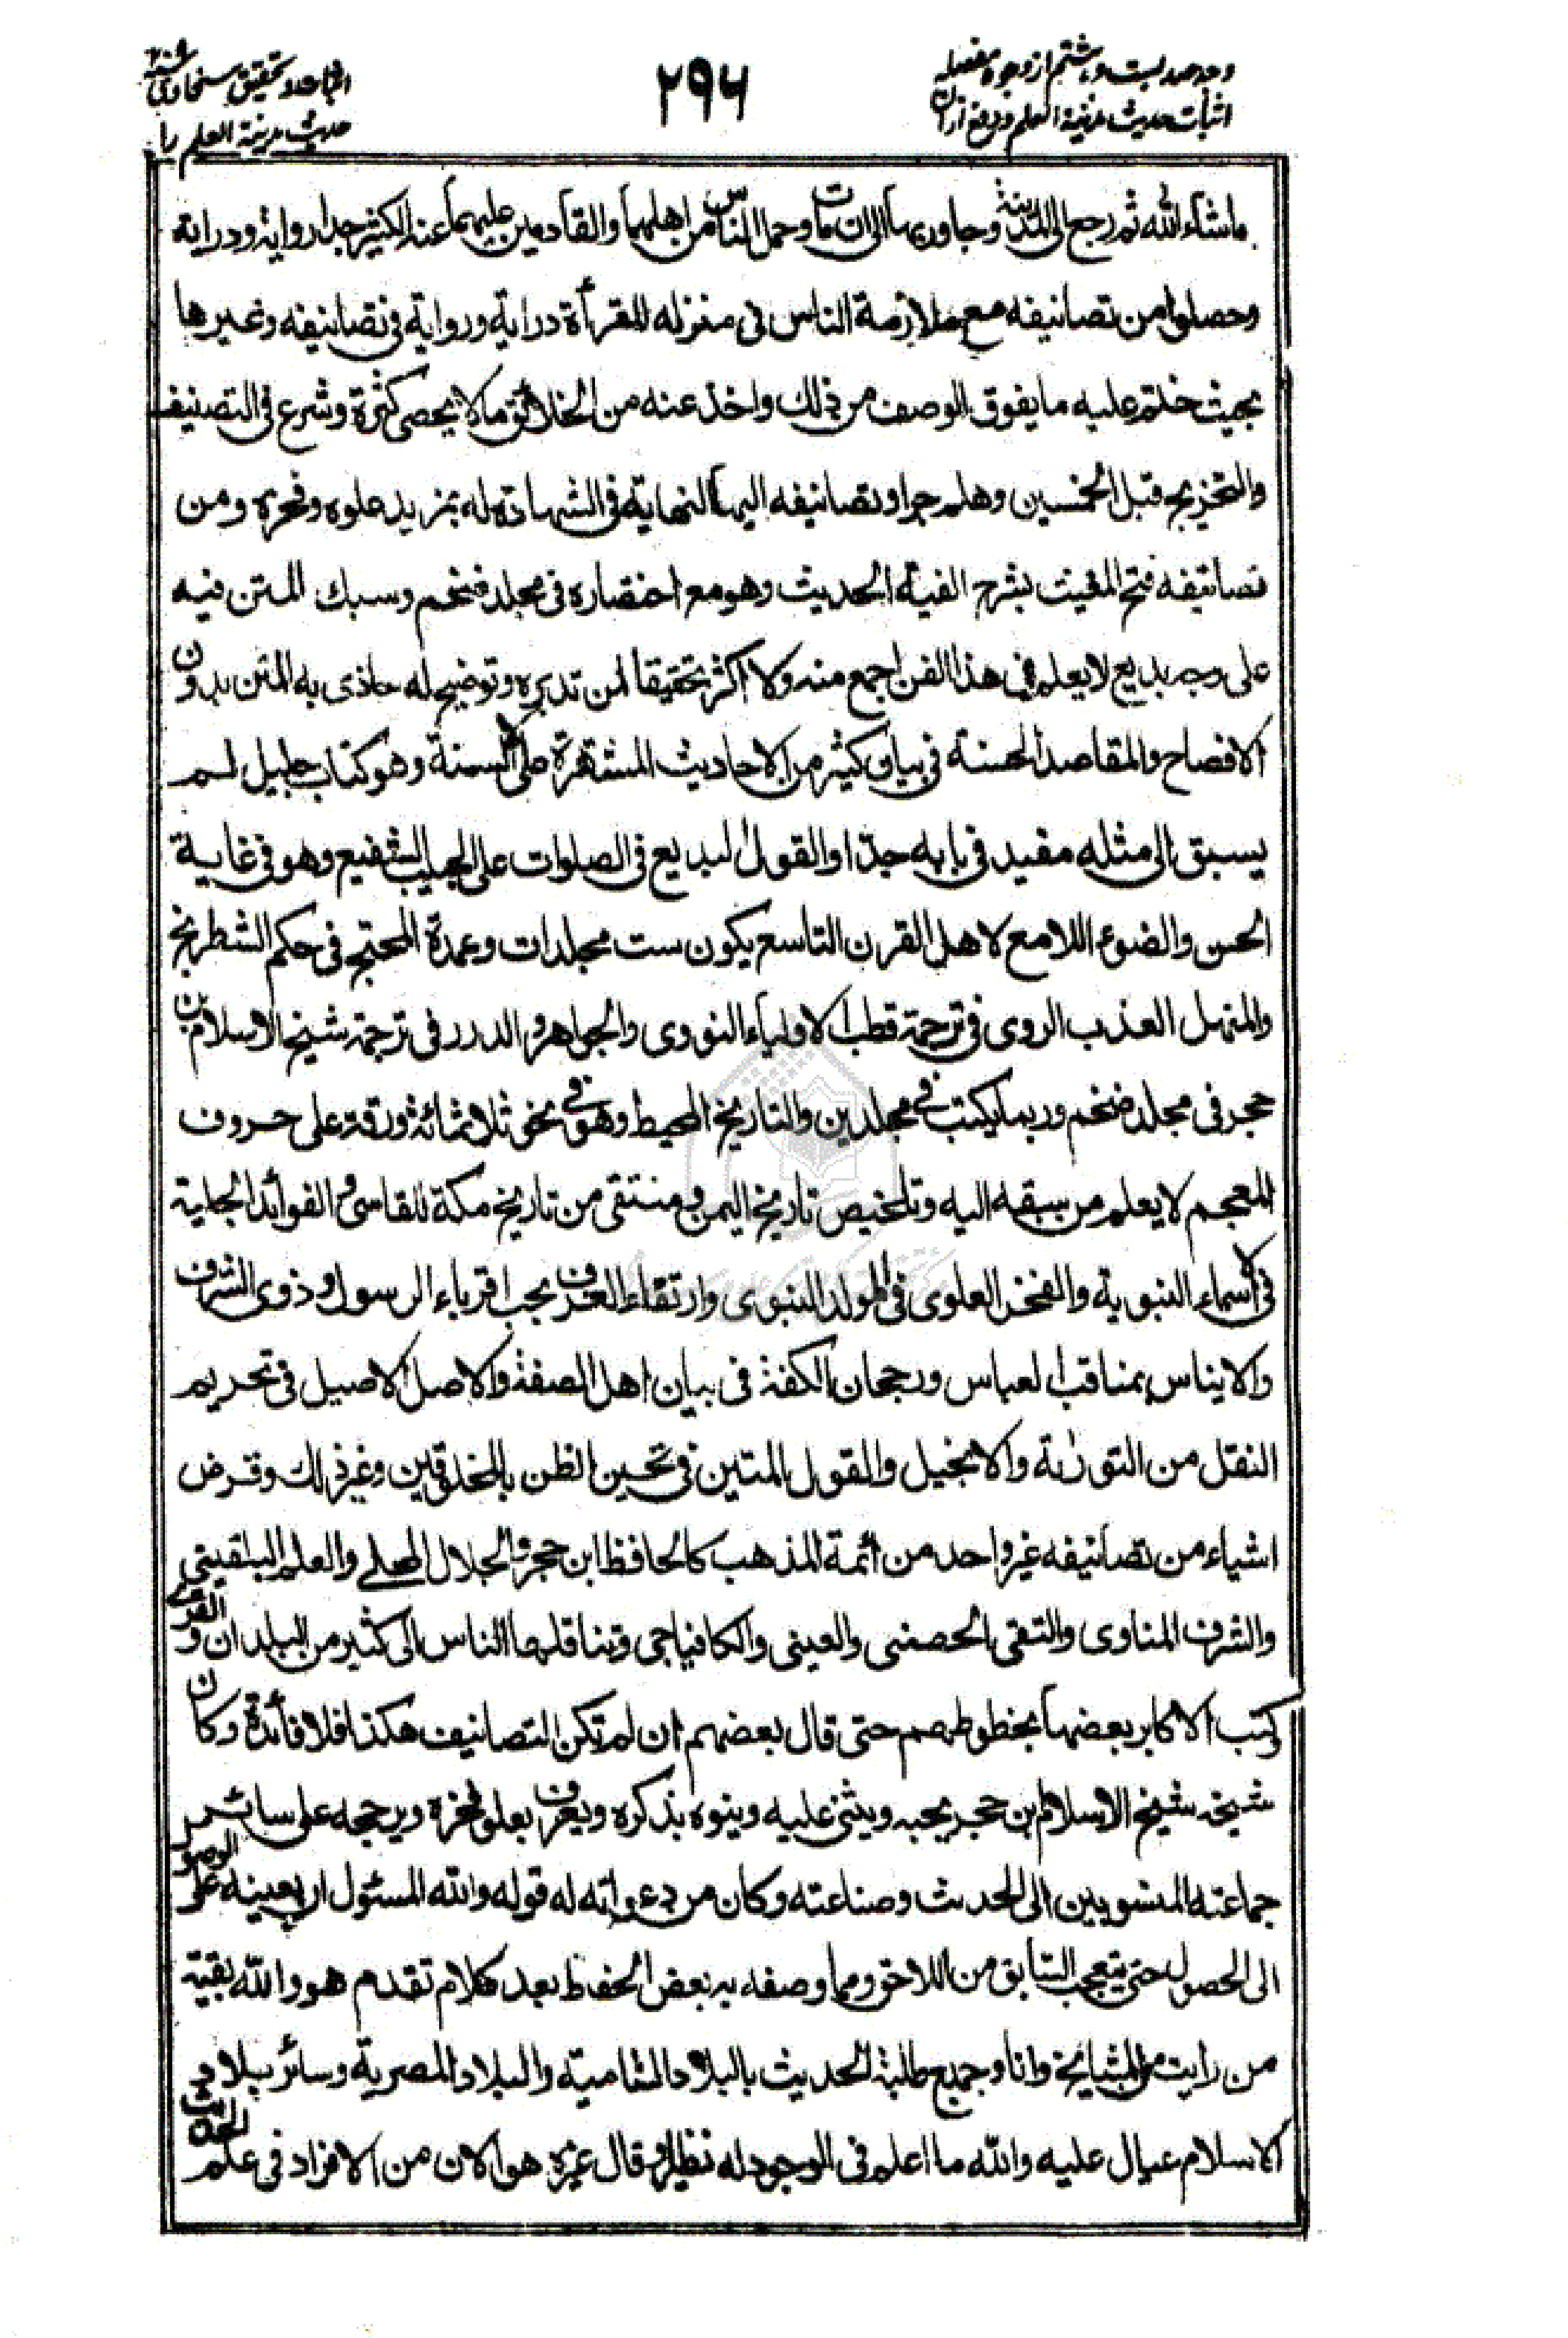 وجه صد بست و هشتم از وجوه مفصله
اثبات حدیث مدینة العلم و دفع آراء
۲۹۶
حدیث مدینة العلم را
ماشاء الله ثم رجع الی المدینة وجاور بها الی ان مات وحمل الناس من اهلهما والقادمین علیهما عنه الکثیر جدا روایة ودرایة
وحصلوا من تصانیفه مع ملازمة الناس فی منزله للقرأة درایة وروایة فی تصانیفه وغیرها
بحیث ختم علیه ما یفوق الوصف من ذلك واخذ عنه من الخلائق ما لا یحصی کثرة وشرع فی التصنیف
والتخریج قبل الخمسین وهلم جرا وتصانیفه الیها النهایة فی الشهادة له بمزید علوه وفخره ومن
تصانیفه فتح المغیث بشرح الفیة الحدیث وهو مع اختصاره فی مجلد ضخم وسبك المتن فیه
علی وجه بدیع لا یعلم فی هذا الفن اجمع منه ولا اکثر تحقیقا لمن تدبره وتوضیح له حاذی به المتن بدون
الافصاح والمقاصد الحسنة فی بیان کثیر من الاحادیث المشتهرة علی الالسنة وهو کتاب جلیل لم
یسبق الی مثله مفید فی بابه جدّا والقول البدیع فی الصلوات علی الحبیب الشفیع وهو فی غایة
الحسن والضوء اللامع لاهل القرن التاسع یکون ست مجلدات وعمدة المحتج فی حکم الشطرنج
والمنهل العذب الروی فی ترجمة قطب الاولیاء النووی والجواهر والدرر فی ترجمة شیخ الاسلام بن
حجر فی مجلد ضخم وربما یکتب فی مجلدین والتاریخ المحیط وهو فی نحو ثلاثمائة ورقة علی حروف
المعجم لا یعلم من سبقه الیه وتلخیص تاریخ الیمن ومنتقی من تاریخ مکة للفاسی والفوائد الجلیة
فی الاسماء النبویة والفخر العلوی فی المولد النبوی وارتقاء الغرف بحب اقرباء الرسول وذوی الشرف
والایناس بمناقب العباس ورجحان الکفة فی بیان اهل الصفة والاصل الاصیل فی تحریم
النقل من التورٰیة والانجیل والقول المتین فی تحسین الظن بالمخلوقین وغیر ذلك وقرض
اشیاء من تصانیفه غیر واحد من ائمة المذهب کالحافظ ابن حجر والجلال المحلے والعلم البلقینی
والشرف المناوی والتقی الحصنی والعینی والکافیاجی وتناقلها الناس الی کثیر من البلدان والقری
وکتب الاکابر بعضها بخطوطهم حتی قال بعضهم ان لم تکن التصانیف هکذا فلا فائدة وکان
شیخه شیخ الاسلام بن حجر یحبه ویثنی علیه وینوه بذکره ویعرف بعلو فخره ویرجحه علی سائر
جماعته المنسوبین الی الحدیث وصناعته وکان من دعواته له قوله والله المسئول ان یعینه علی الوصول
الی الحصول حتی یتعجب السابق من اللاحق ومما وصفه به بعض الحفاظ بعد کلام تقدم هو والله بقیة
من رایت من المشایخ وانا وجمیع طلبة الحدیث بالبلاد الشامیة والبلاد المصریة وسائر بلاد
الاسلام عیال علیه والله ما اعلم فی الوجود له نظیرا وقال غیره هو الان من الافراد فی علم الحدیث